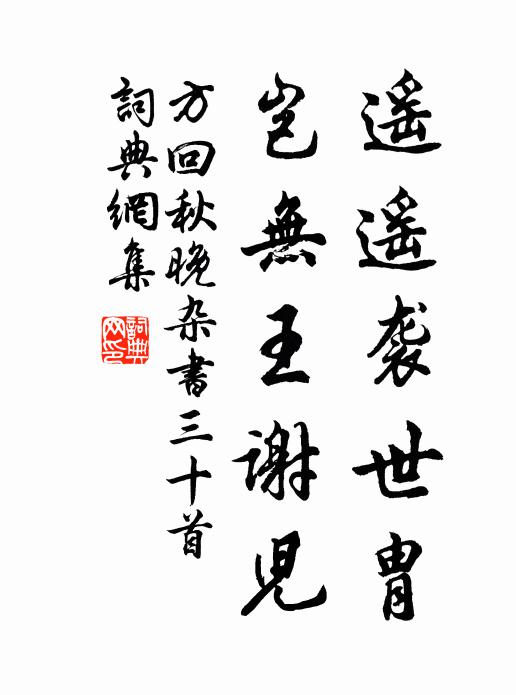 遥遥袭世胄
岂無王谢児
方回秋晚杂書三十首
詞典網集
詞典网印